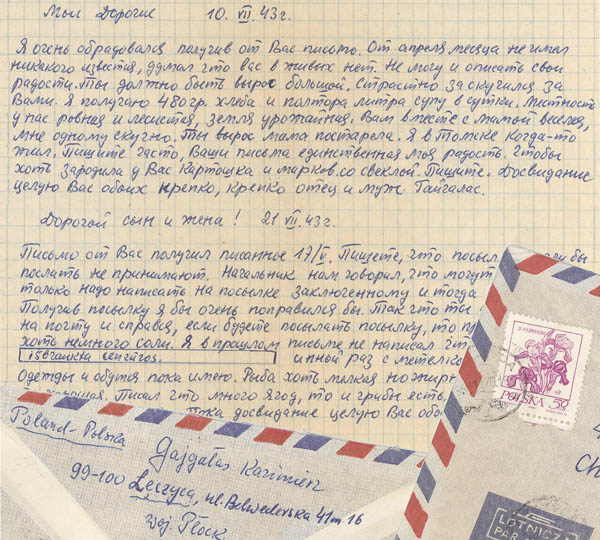 Мои Дорогие 10.VII.43г.
Я очень обрадовался получив от Вас письмо. От апреля месяца не имел
никакого известия, думал что вас в живых нет. Не могу и описать свои
радости. Ты должно быть вырос большой. Страстно заскучился за
Вами. Я получаю 480гр. хлеба и полтора литра супу в сутки. Местность
у нас ровная и лесистая, земля урожайная. Вам вместе с мамой веселее,
мне одному скучно. Ты вырос мама постарела. Я в Томске когда-то
жил. Пишите часто, Ваши письма единственная моя радость. Чтобы
хоть зародила у Вас картошка и марков. со свеклой. Пишите. Досвидание
целую Вас обоих крепко, крепко отец и муж. Гайгалас.
Дорогой сын и жена! 21 VII.43г.
Письмо от Вас получил писанное 17/V. Пишете, что посыл бы
послать не принимают. Начальник нам говорил, что могут
только надо написать на посылке заключенному и тогда
Получив посылку я бы очень поправился бы. Так что ты
на почту и справся, если будете посылать посылку, то п
хоть немного соли. Я в прошлом письме не написал
išbraukta cenzūros. инный раз с метелко
Одежды и обутся пока имею. Рыба хоть мелкая но жирн
Писал что много ягод, то и грибы есть.
Пока досвидание целую Вас обо
Poland-Polska
Gajgalas Kazimierz
99-100 Łęczyca, ul. Belwederska 41 m. 16
Woj Płock
POLSKA 50
LOTNICZA
PAR